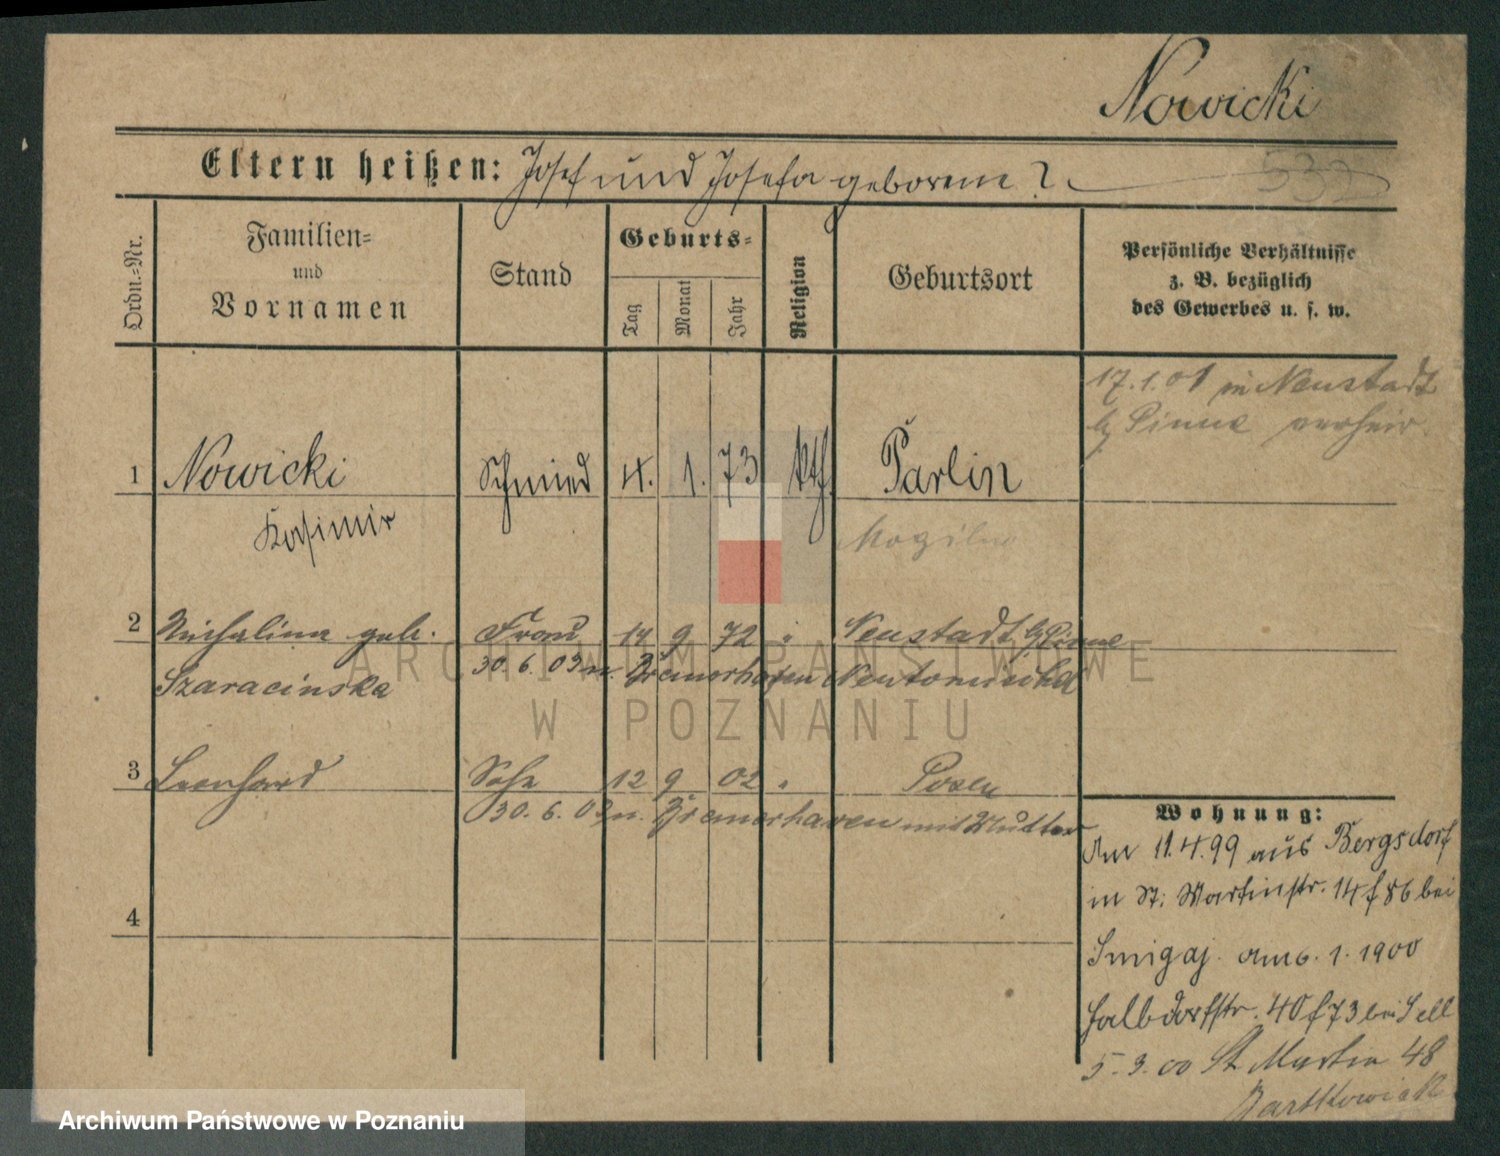 Nowicki
532
Eltern heißen: Josef und Josefa geborene ?
Ordn.-Nr.
Familien-
und
Vornamen
Stand
Geburts-
Tag
Monat
Jahr
Religion
Geburtsort
Persönliche Verhältnisse
z. B. bezüglich
des Gewerbes u. s. w.
17.1.01 in Neustadt
b/ Pinne verheir.
1 Nowicki Schmied 4. 1. 73 kth. Parlin
Kasimir Mogilno
2 Michalina geb. Frau 14 9 72 " Neustadt b/Pinne
Szaracinska 30. 6. 03 n. Bremerhafen Neutomischel
3 Leonhard Sohn 12 9 02 " Posen
30. 6. 03 n. Bremerhaven mit Mutter
4
Wohnung:
Am 11.4.99 aus Bergsdorf
in St. Martinstr. 14 f 86 bei
Smigaj. am 6. 1. 1900
Halbdorfstr. 40 f 73 bei Sell
5. 3. 00 St Martin 48
Bartkowiak
ARCHIWUM PAŃSTWOWE
W POZNANIU
Archiwum Państwowe w Poznaniu